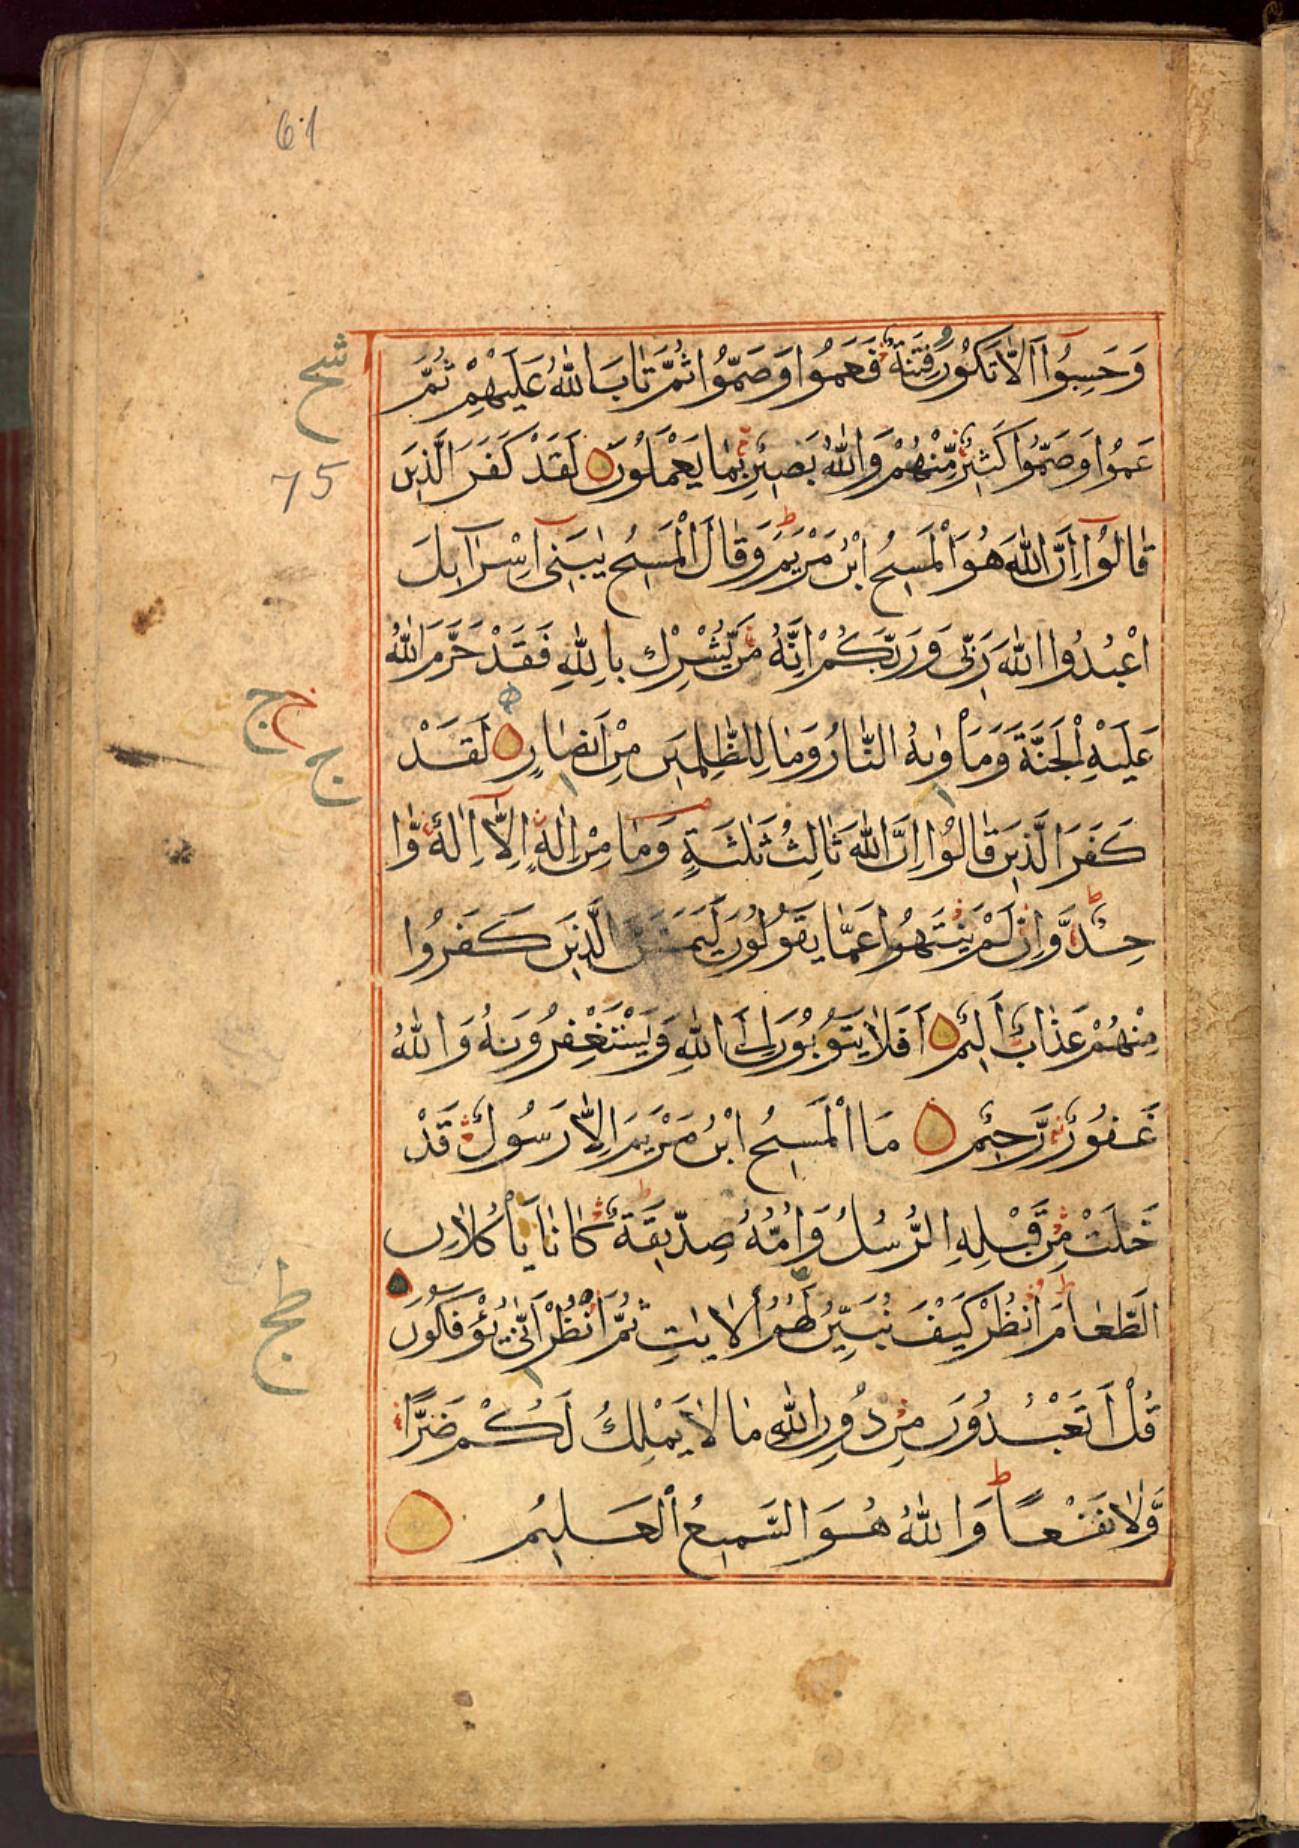 61
وَحَسِبُوٓا اَلَّا تَكُوْنَ فِتْنَةٌ فَعَمُوْا وَصَمُّوْا ثُمَّ تَابَ اللّٰهُ عَلَيْهِمْ ثُمَّ
شح
عَمُوْا وَصَمُّوْا كَثِيْرٌ مِّنْهُمْ وَاللّٰهُ بَصِيْرٌ بِمَا يَعْمَلُوْنَ لَقَدْ كَفَرَ الَّذِيْنَ
75
قَالُوْٓا اِنَّ اللّٰهَ هُوَ الْمَسِيْحُ ابْنُ مَرْيَمَ ط وَقَالَ الْمَسِيْحُ يٰبَنِيْٓ اِسْرَآئِلَ
اعْبُدُوا اللّٰهَ رَبِّيْ وَرَبَّكُمْ اِنَّهُ مَنْ يُّشْرِكْ بِاللّٰهِ فَقَدْ حَرَّمَ اللّٰهُ
عَلَيْهِ الْجَنَّةَ وَمَاْوٰىهُ النَّارُ وَمَا لِلظّٰلِمِيْنَ مِنْ اَنْصَارٍ لَقَدْ
ج ج
ج
كَفَرَ الَّذِيْنَ قَالُوْا اِنَّ اللّٰهَ ثَالِثُ ثَلٰثَةٍ وَمَا مِنْ اِلٰهٍ اِلَّآ اِلٰهٌ وَّا
حِدٌ ط وَّاِنْ لَّمْ يَنْتَهُوْا عَمَّا يَقُوْلُوْنَ لَيَمَسَّنَّ الَّذِيْنَ كَفَرُوْا
مِنْهُمْ عَذَابٌ اَلِيْمٌ اَفَلَا يَتُوْبُوْنَ اِلَى اللّٰهِ وَيَسْتَغْفِرُوْنَهُ وَاللّٰهُ
غَفُوْرٌ رَّحِيْمٌ مَا الْمَسِيْحُ ابْنُ مَرْيَمَ اِلَّا رَسُوْلٌ قَدْ
خَلَتْ مِنْ قَبْلِهِ الرُّسُلُ وَاُمُّهُ صِدِّيْقَةٌ ط كَانَا يَاْكُلَانِ
الطَّعَامَ ط اُنْظُرْ كَيْفَ نُبَيِّنُ لَهُمُ الْاٰيٰتِ ثُمَّ انْظُرْ اَنّٰى يُؤْفَكُوْنَ
طج
قُلْ اَتَعْبُدُوْنَ مِنْ دُوْنِ اللّٰهِ مَا لَا يَمْلِكُ لَكُمْ ضَرًّا
وَّلَا نَفْعًا ط وَاللّٰهُ هُوَ السَّمِيْعُ الْعَلِيْمُ